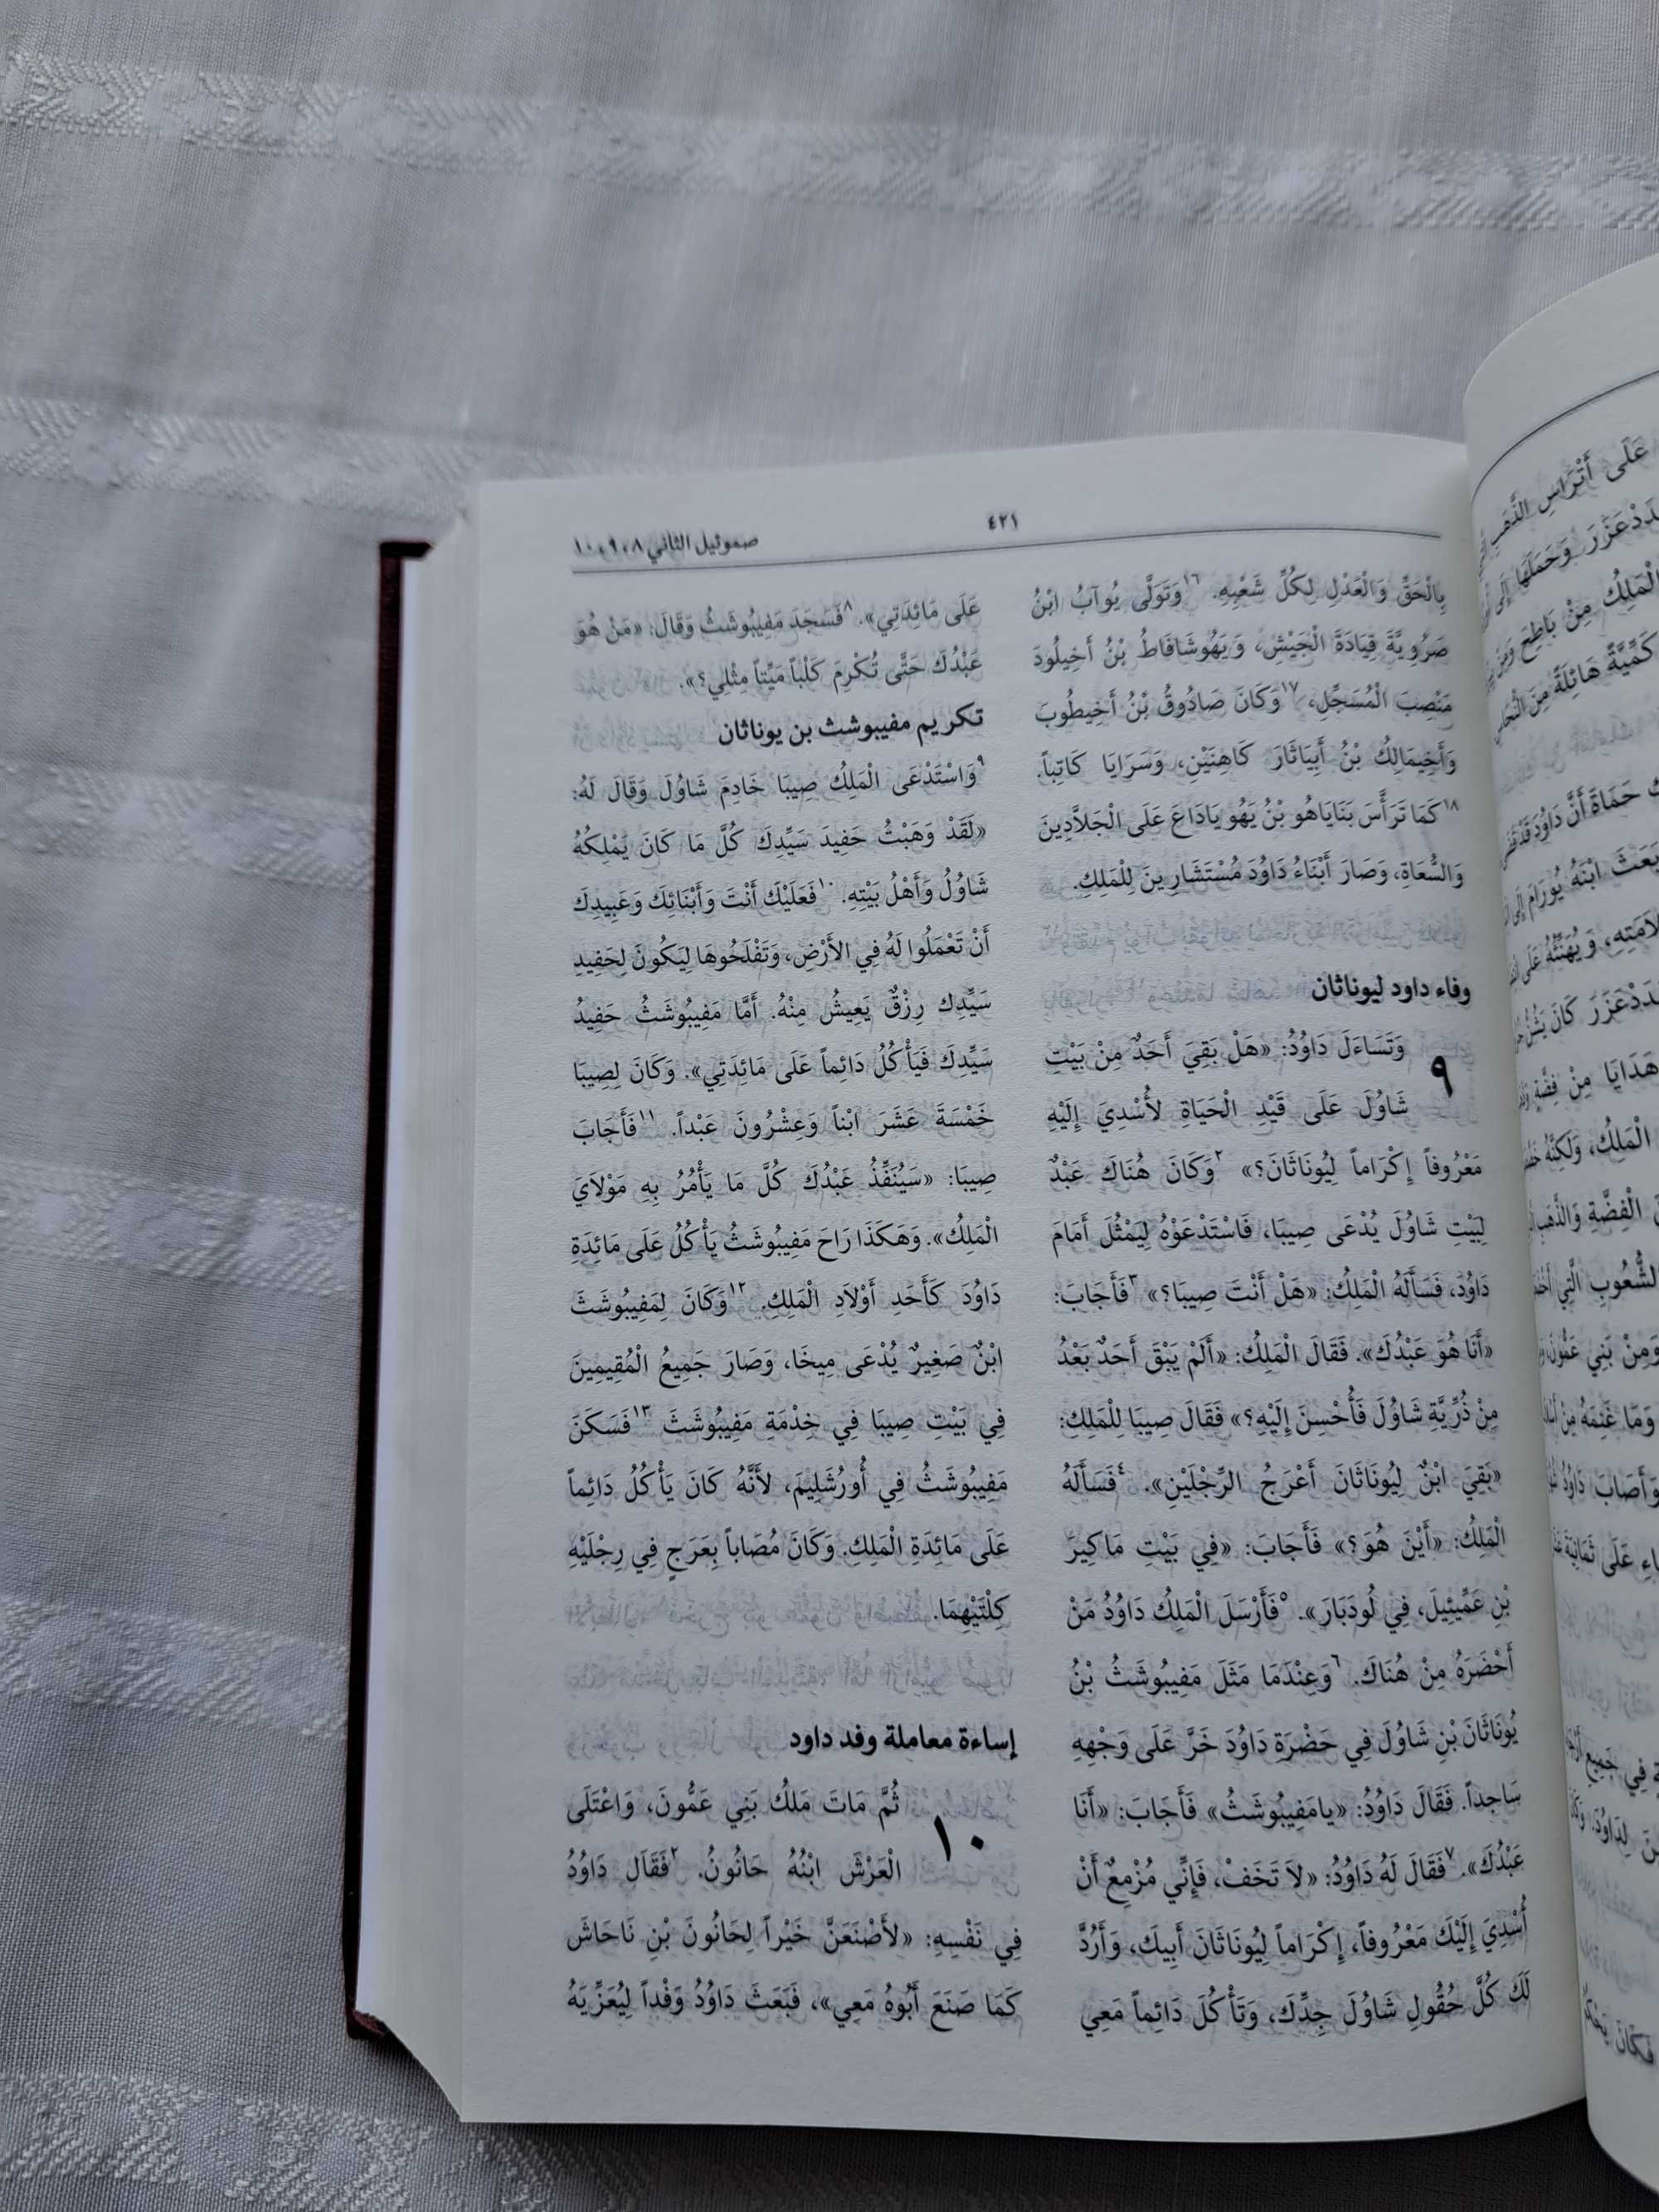 صموئيل الثاني ٨، ٩، ١٠
٤٢١
بِالْحَقِّ وَالْعَدْلِ لِكُلِّ شَعْبِهِ. ١٦وَتَوَلَّى يُوآبُ ابْنُ
صَرُوِيَّةَ قِيَادَةَ الْجَيْشِ، وَيَهُوشَافَاطُ بْنُ أَخِيلُودَ
مَنْصِبَ الْمُسَجِّلِ، ١٧وَكَانَ صَادُوقُ بْنُ أَخِيطُوبَ
وَأَخِيمَالِكُ بْنُ أَبِيَاثَارَ كَاهِنَيْنِ، وَسَرَايَا كَاتِباً.
١٨كَمَا تَرَأَّسَ بَنَايَاهُو بْنُ يَهُويَادَاعَ عَلَى الْجَلاَّدِينَ
وَالسُّعَاةِ، وَصَارَ أَبْنَاءُ دَاوُدَ مُسْتَشَارِينَ لِلْمَلِكِ.
وفاء داود ليوناثان
٩ وَتَسَاءَلَ دَاوُدُ: «هَلْ بَقِيَ أَحَدٌ مِنْ بَيْتِ
شَاوُلَ عَلَى قَيْدِ الْحَيَاةِ لأُسْدِيَ إِلَيْهِ
مَعْرُوفاً إِكْرَاماً لِيُونَاثَانَ؟» ٢وَكَانَ هُنَاكَ عَبْدٌ
لِبَيْتِ شَاوُلَ يُدْعَى صِيبَا، فَاسْتَدْعَوْهُ لِيَمْثُلَ أَمَامَ
دَاوُدَ، فَسَأَلَهُ الْمَلِكُ: «هَلْ أَنْتَ صِيبَا؟» ٣فَأَجَابَ:
«أَنَا هُوَ عَبْدُكَ». فَقَالَ الْمَلِكُ: «أَلَمْ يَبْقَ أَحَدٌ بَعْدُ
مِنْ ذُرِّيَّةِ شَاوُلَ فَأُحْسِنَ إِلَيْهِ؟» فَقَالَ صِيبَا لِلْمَلِكِ:
«بَقِيَ ابْنٌ لِيُونَاثَانَ أَعْرَجُ الرِّجْلَيْنِ». ٤فَسَأَلَهُ
الْمَلِكُ: «أَيْنَ هُوَ؟» فَأَجَابَ: «فِي بَيْتِ مَاكِيرَ
بْنِ عَمِّيئِيلَ، فِي لُودَبَارَ». ٥فَأَرْسَلَ الْمَلِكُ دَاوُدُ مَنْ
أَحْضَرَهُ مِنْ هُنَاكَ. ٦وَعِنْدَمَا مَثَلَ مَفِيبُوشَثُ بْنُ
يُونَاثَانَ بْنِ شَاوُلَ فِي حَضْرَةِ دَاوُدَ خَرَّ عَلَى وَجْهِهِ
سَاجِداً. فَقَالَ دَاوُدُ: «يامَفِيبُوشَثُ» فَأَجَابَ: «أَنَا
عَبْدُكَ». ٧فَقَالَ لَهُ دَاوُدُ: «لاَ تَخَفْ، فَإِنِّي مُزْمِعٌ أَنْ
أُسْدِيَ إِلَيْكَ مَعْرُوفاً، إِكْرَاماً لِيُونَاثَانَ أَبِيكَ، وَأَرُدَّ
لَكَ كُلَّ حُقُولِ شَاوُلَ جِدِّكَ، وَتَأْكُلَ دَائِماً مَعِي
عَلَى مَائِدَتِي». ٨فَسَجَدَ مَفِيبُوشَثُ وَقَالَ: «مَنْ هُوَ
عَبْدُكَ حَتَّى تُكْرِمَ كَلْباً مَيِّتاً مِثْلِي؟».
تكريم مفيبوشث بن يوناثان
٩وَاسْتَدْعَى الْمَلِكُ صِيبَا خَادِمَ شَاوُلَ وَقَالَ لَهُ:
«لَقَدْ وَهَبْتُ حَفِيدَ سَيِّدِكَ كُلَّ مَا كَانَ يَمْلِكُهُ
شَاوُلُ وَأَهْلُ بَيْتِهِ. ١٠فَعَلَيْكَ أَنْتَ وَأَبْنَائِكَ وَعَبِيدِكَ
أَنْ تَعْمَلُوا لَهُ فِي الأَرْضِ، وَتَفْلَحُوهَا لِيَكُونَ لِحَفِيدِ
سَيِّدِكَ رِزْقٌ يَعِيشُ مِنْهُ. أَمَّا مَفِيبُوشَثُ حَفِيدُ
سَيِّدِكَ فَيَأْكُلُ دَائِماً عَلَى مَائِدَتِي». وَكَانَ لِصِيبَا
خَمْسَةَ عَشَرَ ابْناً وَعِشْرُونَ عَبْداً. ١١فَأَجَابَ
صِيبَا: «سَيُنَفِّذُ عَبْدُكَ كُلَّ مَا يَأْمُرُ بِهِ مَوْلاَيَ
الْمَلِكُ». وَهَكَذَا رَاحَ مَفِيبُوشَثُ يَأْكُلُ عَلَى مَائِدَةِ
دَاوُدَ كَأَحَدِ أَوْلاَدِ الْمَلِكِ. ١٢وَكَانَ لِمَفِيبُوشَثَ
ابْنٌ صَغِيرٌ يُدْعَى مِيخَا، وَصَارَ جَمِيعُ الْمُقِيمِينَ
فِي بَيْتِ صِيبَا فِي خِدْمَةِ مَفِيبُوشَثَ ١٣فَسَكَنَ
مَفِيبُوشَثُ فِي أُورُشَلِيمَ، لأَنَّهُ كَانَ يَأْكُلُ دَائِماً
عَلَى مَائِدَةِ الْمَلِكِ. وَكَانَ مُصَاباً بِعَرَجٍ فِي رِجْلَيْهِ
كِلْتَيْهِمَا.
إساءة معاملة وفد داود
١٠ ثُمَّ مَاتَ مَلِكُ بَنِي عَمُّونَ، وَاعْتَلَى
الْعَرْشَ ابْنُهُ حَانُونُ. ٢فَقَالَ دَاوُدُ
فِي نَفْسِهِ: «لأَصْنَعَنَّ خَيْراً لِحَانُونَ بْنِ نَاحَاشَ
كَمَا صَنَعَ أَبُوهُ مَعِي»، فَبَعَثَ دَاوُدُ وَفْداً لِيُعَزِّيَهُ